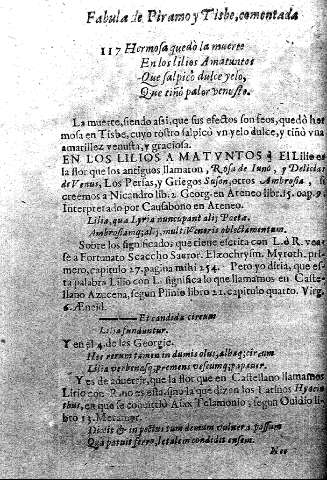 Fabula de Piramo y Tisbe, comentada
117 Hermosa quedò la muerte
En los lilios Amatuntos
Que salpicò dulce yelo,
Que tiñò palor venusto.
La muerte, siendo assi, que sus efectos son feos, quedò her
mosa en Tisbe, cuyo rostro salpicò vn yelo dulce, y tiñò vna
amarillez venusta, y graciosa.
EN LOS LILIOS AMATVNTOS El Lilio es
la flor que los antiguos llamaron, Rosa de Iuno, y Delicias
de Venus, Los Persas, y Griegos Suson, otros Ambrosia, si
creemos a Nicandro lib. 2. Georg. en Ateneo lib. 15. cap. 9.
Interpretado por Causabono en Ateneo.
Lilia, qua Lyria nuncupant alij Poeta,
Ambrosiamq; alij, multi Veneris oblectamentum.
Sobre los significados que tiene escrita con L. ò R. vea
se a Fortunato Scaccho Sacror. Elæochrysm. Myroth. pri-
mero, capitulo 27. pagina mihi 254. Pero yo diria, que es-
ta palabra Lilio con L. significa lo que llamamos en Caste-
llano Azucena, segun Plinio libro 21. capitulo quarto. Virg.
6. Æneid.
Et candida circum
Lilia funduntur.
Y en el 4. de las Georgic.
Hic rarum tamen in dumis olus, albaq; circum
Lilia verbenasq; premens vescumq; papauer.
Y es de aduertir, que la flor que en Castellano llamamos
Lirio con R. no es esta, sino la que dizen los Latinos Hyacin
thus, en que se conuirtio Aiax Telamonio, segun Ouidio li-
bro 13. Metamor.
Dixit & in pectus tum demum vulnera passum
Qua patuit ferro, letalem condidit ensem.